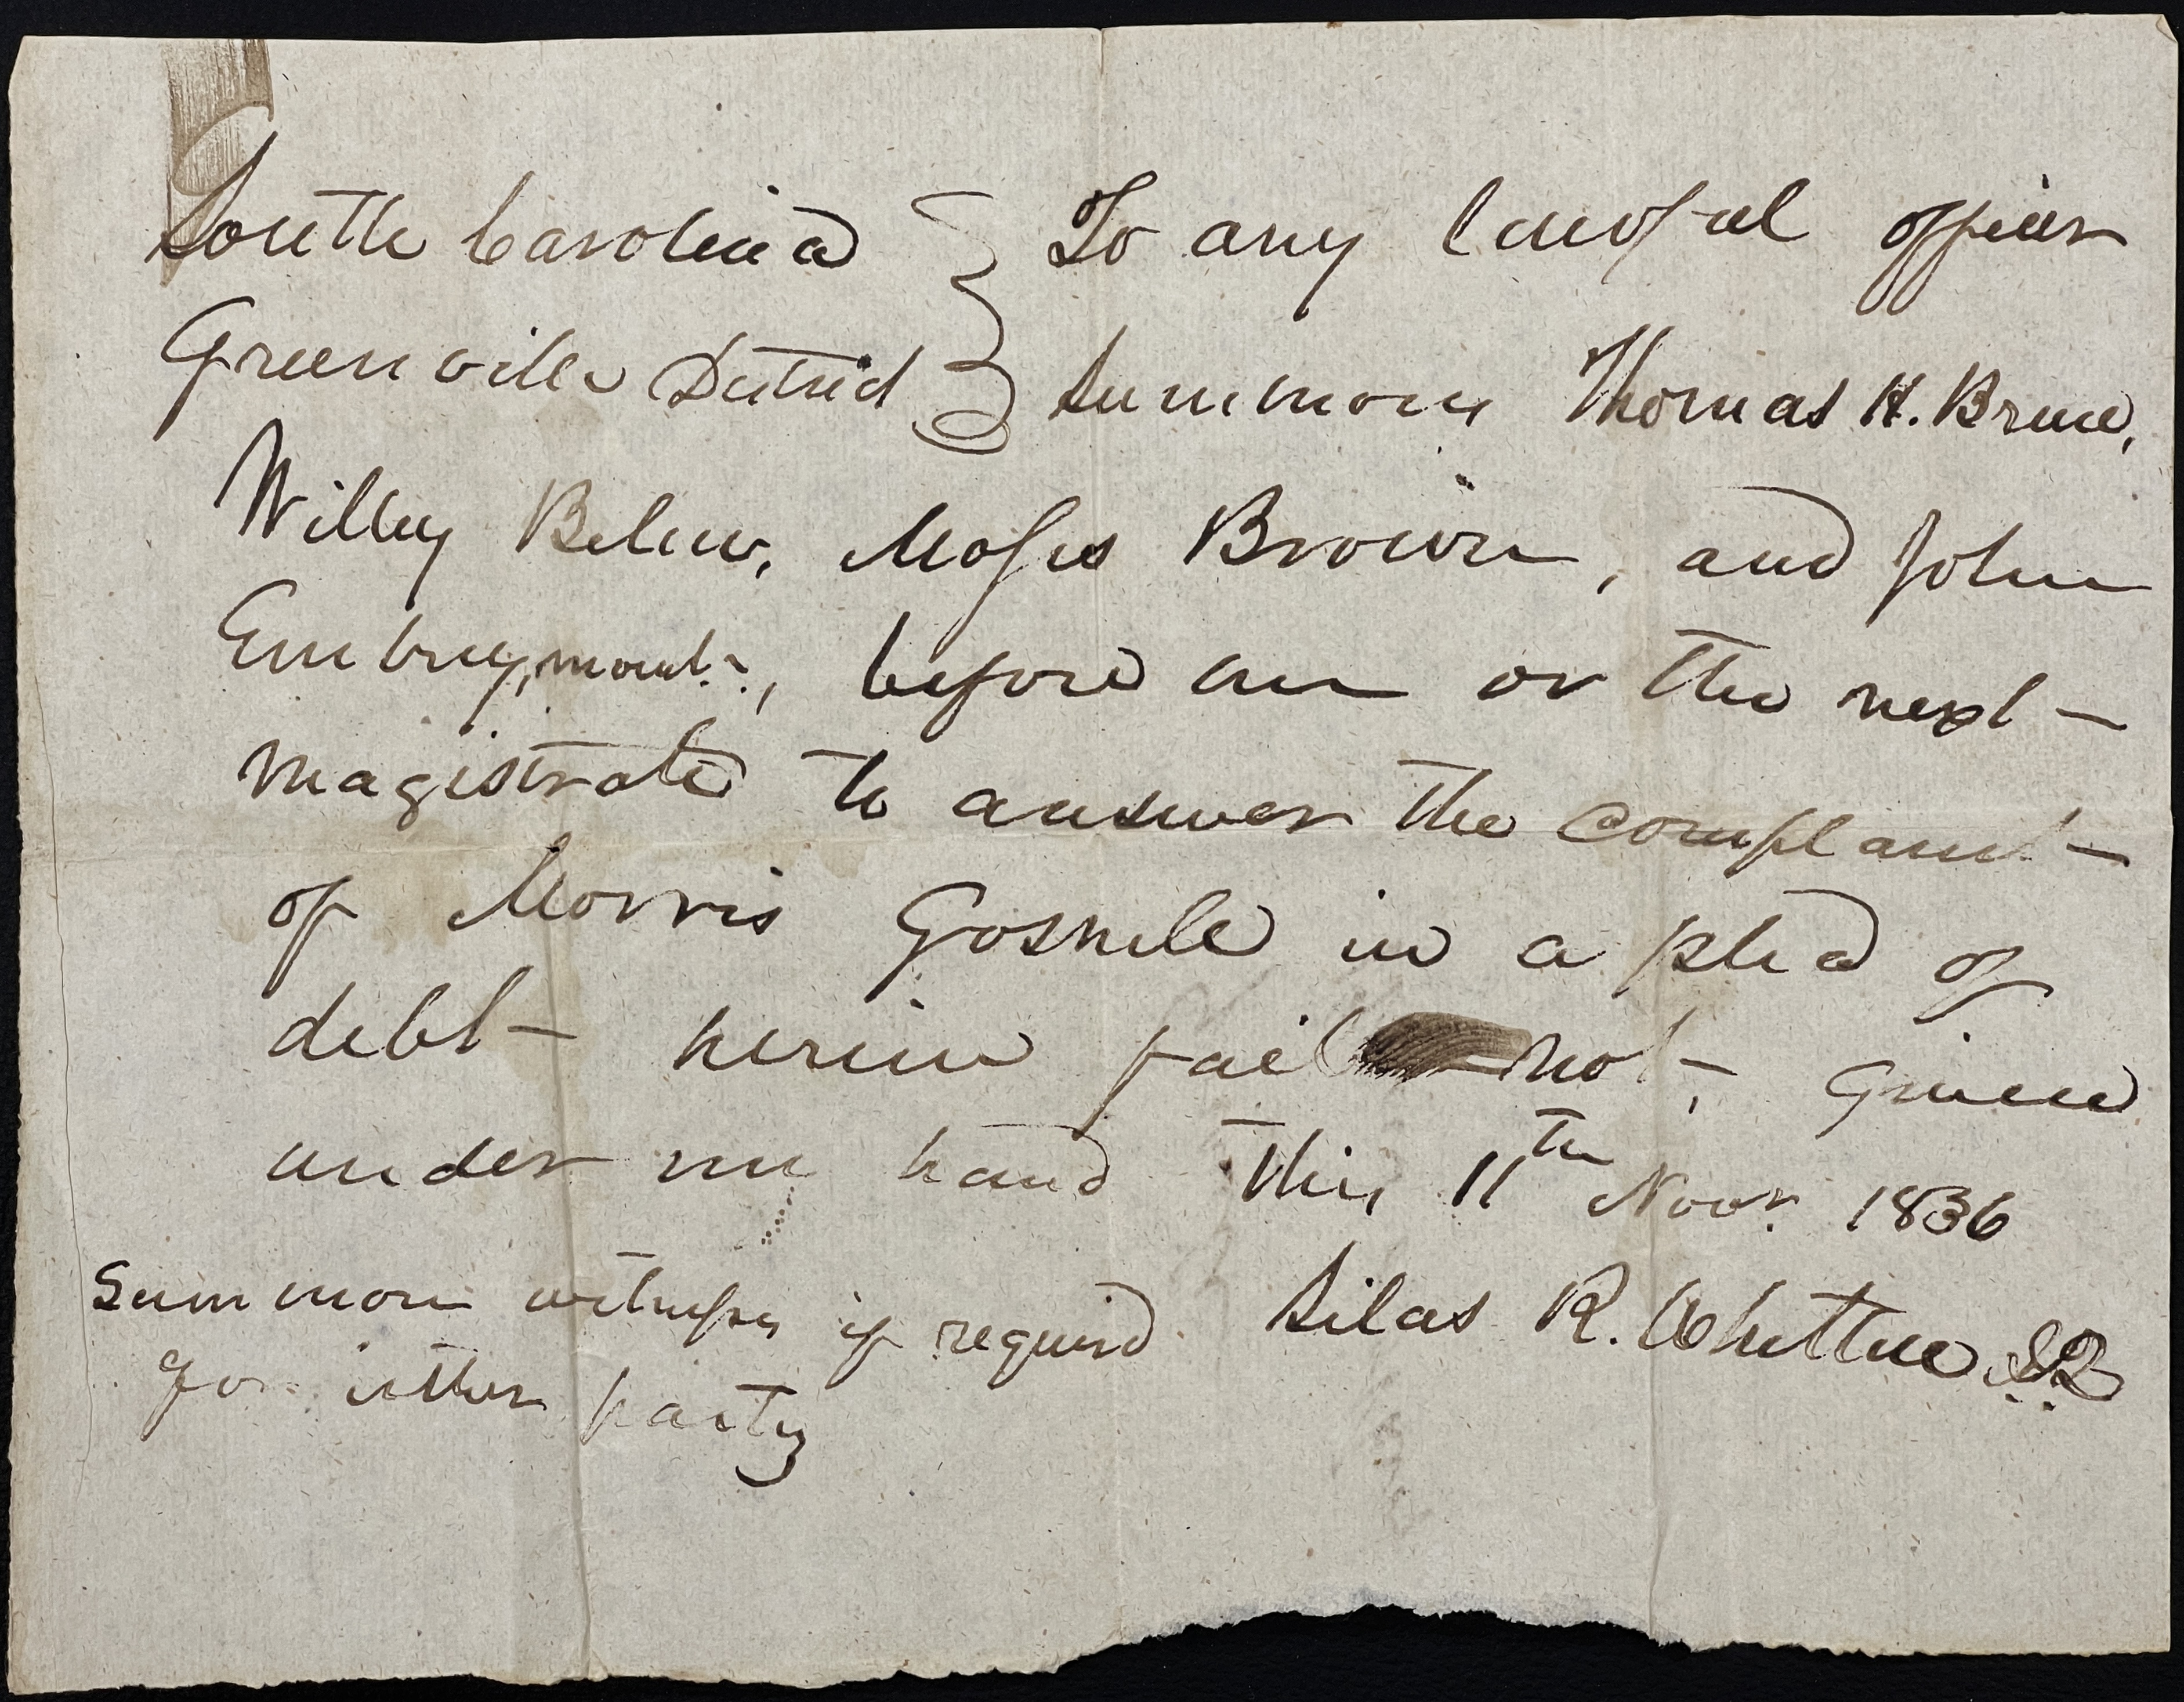 South Carolina } To any lawful officer
Greenville District } Summons Thomas H. Bruce,
Willey Belew, Moses Brown, and John
Embrey, before me or the next
magistrate to answer the complaint
of Morris Gosnele in a plea of
debt herein fail not, Given
under my hand this 11th Novr. 1836
Summon witnesses if required Silas R. Whitten
for either party